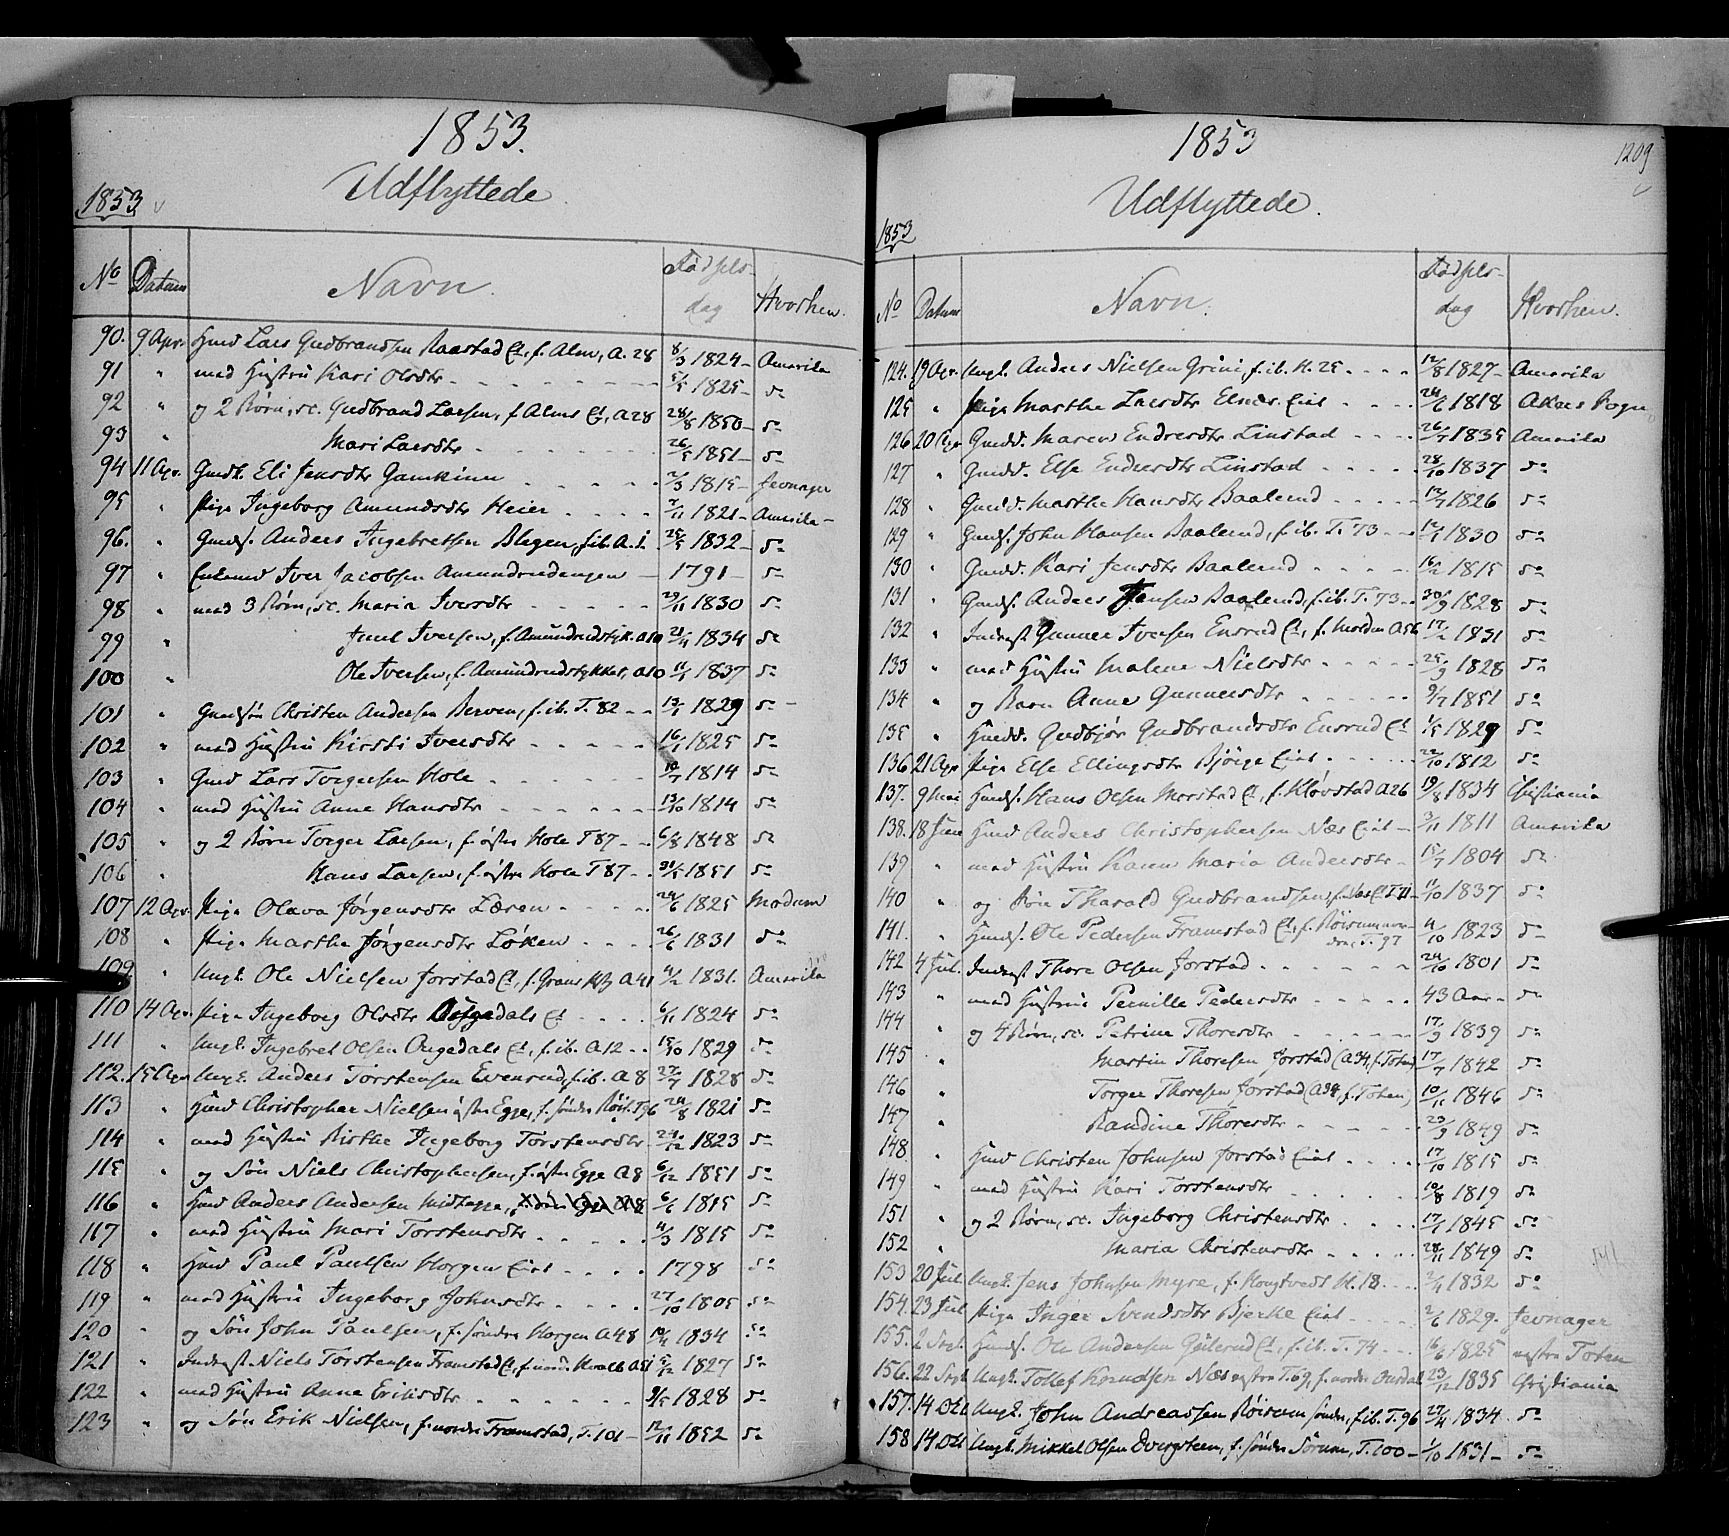 1853.
Udflyttede
1853
No Datum Navn. Fødsels-
dag Hvorhen.
90. 9 Apr. Huusmd Lars Gudbrandsen Raastad Et, f. Alm, A. 28 8/3 1824 - Amerika
91 " med Hustru Kari Olsdtr 5/5 1825 - do
92 " og 2 Børn, sc. Gudbrand Larsen, f Alms Et, A28 28/8 1850 - do
93 " Mari Larsdtr 26/5 1851 - do
94 11 Apr. Gmdk. Eli Jensdtr Gamkinn 2/3 1815 - Jevnager
95 " Pige Ingeborg Amundsdtr Heier 7/11 1821 - Amerika -
96. " Gmds. Anders Ingebretsen Blegen, f. ib. A. 1 25/5 1832 - do
97 " Enkemd Iver Jacobsen Amundrudengen - 1791 - do
98 " med 3 Børn, sc. Maria Iversdtr 23/11 1830 do
99 " Juul Iversen, f. Amundrudstyk. A10 21/4 1834 do
100 " Ole Iversen, f. Amundrudstykket, A10 11/5 1837 do
101 " Gmdsøn Christen Andersen Berven, f. ib. T. 82 13/1 1829 do -
102 " med Hustru Kirsti Iversdtr 16/1 1825 do
103 " Gmd Lars Torgersen Hole 10/7 1814 do
104 " med Hustru Anne Hansdtr 13/10 1814 do
105 " og 2 Børn Torger Larsen, f. østre Hole T87 6/8 1848 do
106 " Hans Larsen, f. østre Hole T87 31/5 1851 do
107 12 Apr. Pige Olava Jørgensdtr Læren 24/6 1825 Modum
108 " Pige Marthe Jørgensdtr Løken 26/6 1831 do
109 " Ungk. Ole Nielsen Jorstad Et, f. Grans A41 4/2 1831. Amerika
110 14 Apr. Pige Ingeborg Olsdtr Augedals Et 6/11 1824 do
111 " Ungk. Ingebret Olsen Augedals Et, f. ib. A12 15/10 1829 do
112. 15 Apr Ungk. Anders Torstensen Evensrud, f. ib. A 8 27/7 1828 do
113 " Huusmd Christopher Nielsen østre Egge, f. søndre Røis. T96 24/8 1821 do
114 " med Hustru Birthe Ingeborg Torstensdtr 24/12 1823 do
115 " og Søn Niels Christophersen, f. østre Egge A8 6/12 1851 do
116 " Huusmd Anders Andersen Midtegge, 6/6 1815 do
117 " med Hustru Mari Torstensdtr 4/3 1815 do
118 " Huusmd Paul Paulsen Horgen Eiet 1798 do
119 " med Hustru Ingeborg Johnsdtr 27/10 1805 do
120 " og Søn John Paulsen, f. søndre Horgen A48 10/4 1834 do
121 " Inderst Niels Torstensen Framstad Et, f. nord. Hvaleb A51 5/12 1827 do
122 " med Hustru Anne Eriksdtr 9/5 1828 do
123 " og Søn Erik Nielsen, f. nordre Framstad, T. 101 - 12/11 1852 do
1853
1209
Udflyttede.
1853
No Datum Navn. Fødsels-
dag Hvorhen.
124. 19 Apr. Ungk. Anders Nielsen Grini, f. ib. H. 25 12/8 1827 - Amerika
125 " Pige Marthe Larsdtr Elnes Eiet 24/6 1818 Akers Sogn
126 20 Apr Gmdd. Maren Endresdtr Linstad 26/7 1835 Amerika
127 " Gmdd. Else Endresdtr Linstad 28/10 1837 do
128 " Gmdd. Marthe Hansdtr Baalerud 13/7 1826 do
129 " Gmds. John Hansen Baalerud, f. ib. T. 73 12/1 1830 do
130 " Gmdd. Kari Jensdtr Baalerud 16/2 1815 do
131 " Gmds. Anders Jansen Baalerud, f. ib. T. 73 30/9 1828 do
132 " Inderst Gunner Iversen Ensrud Et, f. Molden A56 17/2 1831 do
133 " med Hustru Malene Nielsdtr 25/9 1828 do
134 " og Barn Anne Gunnersdtr 9/7 1851 do
135 " Huusmdd. Gudbjør Gudbrandsdtr Ensrud Et 1/5 1829 do
136 21 Apr Pige Else Ellingsdtr Bjørge Eiet 22/10 1812 do
137. 9 Mai Huusmds. Hans Olsen Morstad Et, f. Kløvstad A26 19/8 1834 Christiania
138. 18 Juni Huusmd Anders Christophersen Næs Eiet 3/11 1811 Amerika
139 " med Hustru Karen Maria Andersdtr 15/7 1804 do
140 " og Søn Tharald Gudbrandsen, f. Næs Et T. 71 11/10 1837 do
141. " Huusmds. Ole Pedersen Framstad Et, f. Røisummor-
den, T. 97 4/10 1823 do
142 4 Jul. Inderst Thore Olsen Jorstad 24/10 1801 do
143 " med Hustru Pernille Pedersdtr 43 Aar do
144 " og 4 Børn, sc. Petrine Thoresdtr 17/3 1839 do
145 " Martin Thoresen Jorstad (A34, f. Toten) 17/7 1842 do
146 " Torger Thoresen Jorstad (A34, f. Toten) 10/11 1846 do
147 " Randine Thoresdtr 23/9 1849 do
148. " Huusmd Christen Johnsen Jorstad Eiet 17/10 1815 do
149 " med Hustru Kari Torstensdtr 10/8 1819 do
151 " og 2 Børn, sc. Ingeborg Christensdtr 17/1 1845 do
152 " Maria Christensdtr 28/11 1849 do
153 20 Jul. Ungk. Jens Johnsen Myre, f. Hougtvedt H. 18. 2/4 1832 do
154. 23 Jul Pige Inger Svendsdtr Bjerke Eiet 2/6 1829. Jevnager
155. 2 Sept. Huusmds. Ole Andersen Gulerud Et, f. ib. T. 74 16/6 1825 vestre Toten
156. 22 Sept Ungk. Tollef Knudsen Næs vestre T. 69, f. nordre Aurdal 23/12 1835 Christiania
157. 14 Oct Ungk. John Andreassen Røisum søndre, f. ib. T. 96 27/4 1834 do
158 14 Oct Ungk. Mikkel Olsen Dvergsteen, f. søndre Sørum, T. 100 - 1/10 1831 - do